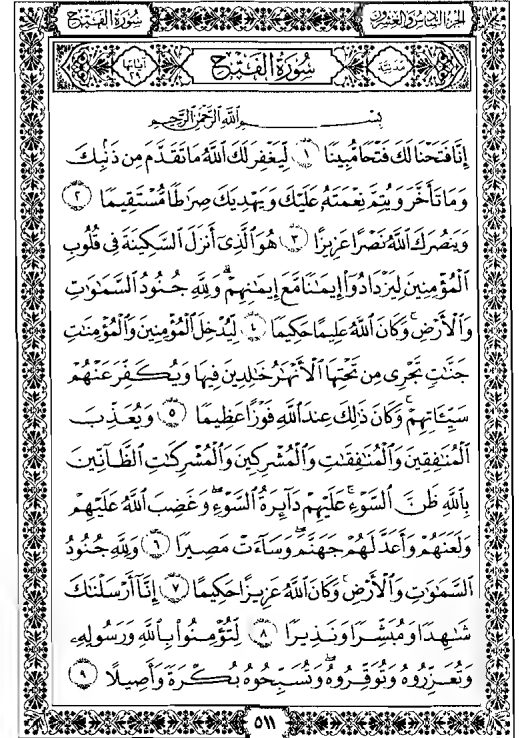 الجزء السادس والعشرون سورة الفتح
مدنية سُورَةُ الفَتْحِ آياتها ٢٩
بِسْمِ اللَّهِ الرَّحْمَٰنِ الرَّحِيمِ
إِنَّا فَتَحْنَا لَكَ فَتْحًا مُّبِينًا ١ لِّيَغْفِرَ لَكَ اللَّهُ مَا تَقَدَّمَ مِن ذَنۢبِكَ
وَمَا تَأَخَّرَ وَيُتِمَّ نِعْمَتَهُۥ عَلَيْكَ وَيَهْدِيَكَ صِرَٰطًا مُّسْتَقِيمًا ٢
وَيَنصُرَكَ اللَّهُ نَصْرًا عَزِيزًا ٣ هُوَ الَّذِىٓ أَنزَلَ السَّكِينَةَ فِى قُلُوبِ
الْمُؤْمِنِينَ لِيَزْدَادُوٓا۟ إِيمَٰنًا مَّعَ إِيمَٰنِهِمْ ۗ وَلِلَّهِ جُنُودُ السَّمَٰوَٰتِ
وَالْأَرْضِ ۚ وَكَانَ اللَّهُ عَلِيمًا حَكِيمًا ٤ لِّيُدْخِلَ الْمُؤْمِنِينَ وَالْمُؤْمِنَٰتِ
جَنَّٰتٍ تَجْرِى مِن تَحْتِهَا الْأَنْهَٰرُ خَٰلِدِينَ فِيهَا وَيُكَفِّرَ عَنْهُمْ
سَيِّـَٔاتِهِمْ ۚ وَكَانَ ذَٰلِكَ عِندَ اللَّهِ فَوْزًا عَظِيمًا ٥ وَيُعَذِّبَ
الْمُنَٰفِقِينَ وَالْمُنَٰفِقَٰتِ وَالْمُشْرِكِينَ وَالْمُشْرِكَٰتِ الظَّآنِّينَ
بِاللَّهِ ظَنَّ السَّوْءِ ۚ عَلَيْهِمْ دَآئِرَةُ السَّوْءِ ۖ وَغَضِبَ اللَّهُ عَلَيْهِمْ
وَلَعَنَهُمْ وَأَعَدَّ لَهُمْ جَهَنَّمَ ۖ وَسَآءَتْ مَصِيرًا ٦ وَلِلَّهِ جُنُودُ
السَّمَٰوَٰتِ وَالْأَرْضِ ۚ وَكَانَ اللَّهُ عَزِيزًا حَكِيمًا ٧ إِنَّآ أَرْسَلْنَٰكَ
شَٰهِدًا وَمُبَشِّرًا وَنَذِيرًا ٨ لِّتُؤْمِنُوا۟ بِاللَّهِ وَرَسُولِهِۦ
وَتُعَزِّرُوهُ وَتُوَقِّرُوهُ ۚ وَتُسَبِّحُوهُ بُكْرَةً وَأَصِيلًا ٩
٥١١